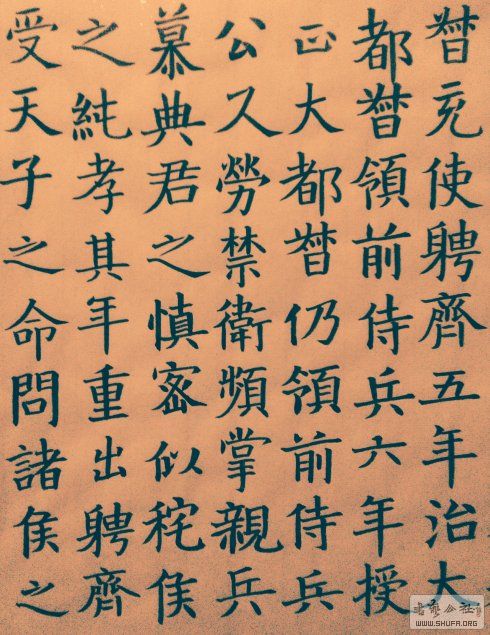 督充使聘齊五年治大
都督領前侍兵六年授
正大都督仍領前侍兵
公久勞禁衛頻掌親兵
慕典君之慎密似秺侯
之純孝其年重出聘齊
受天子之命問諸侯之
WWW.SHUFA.ORG